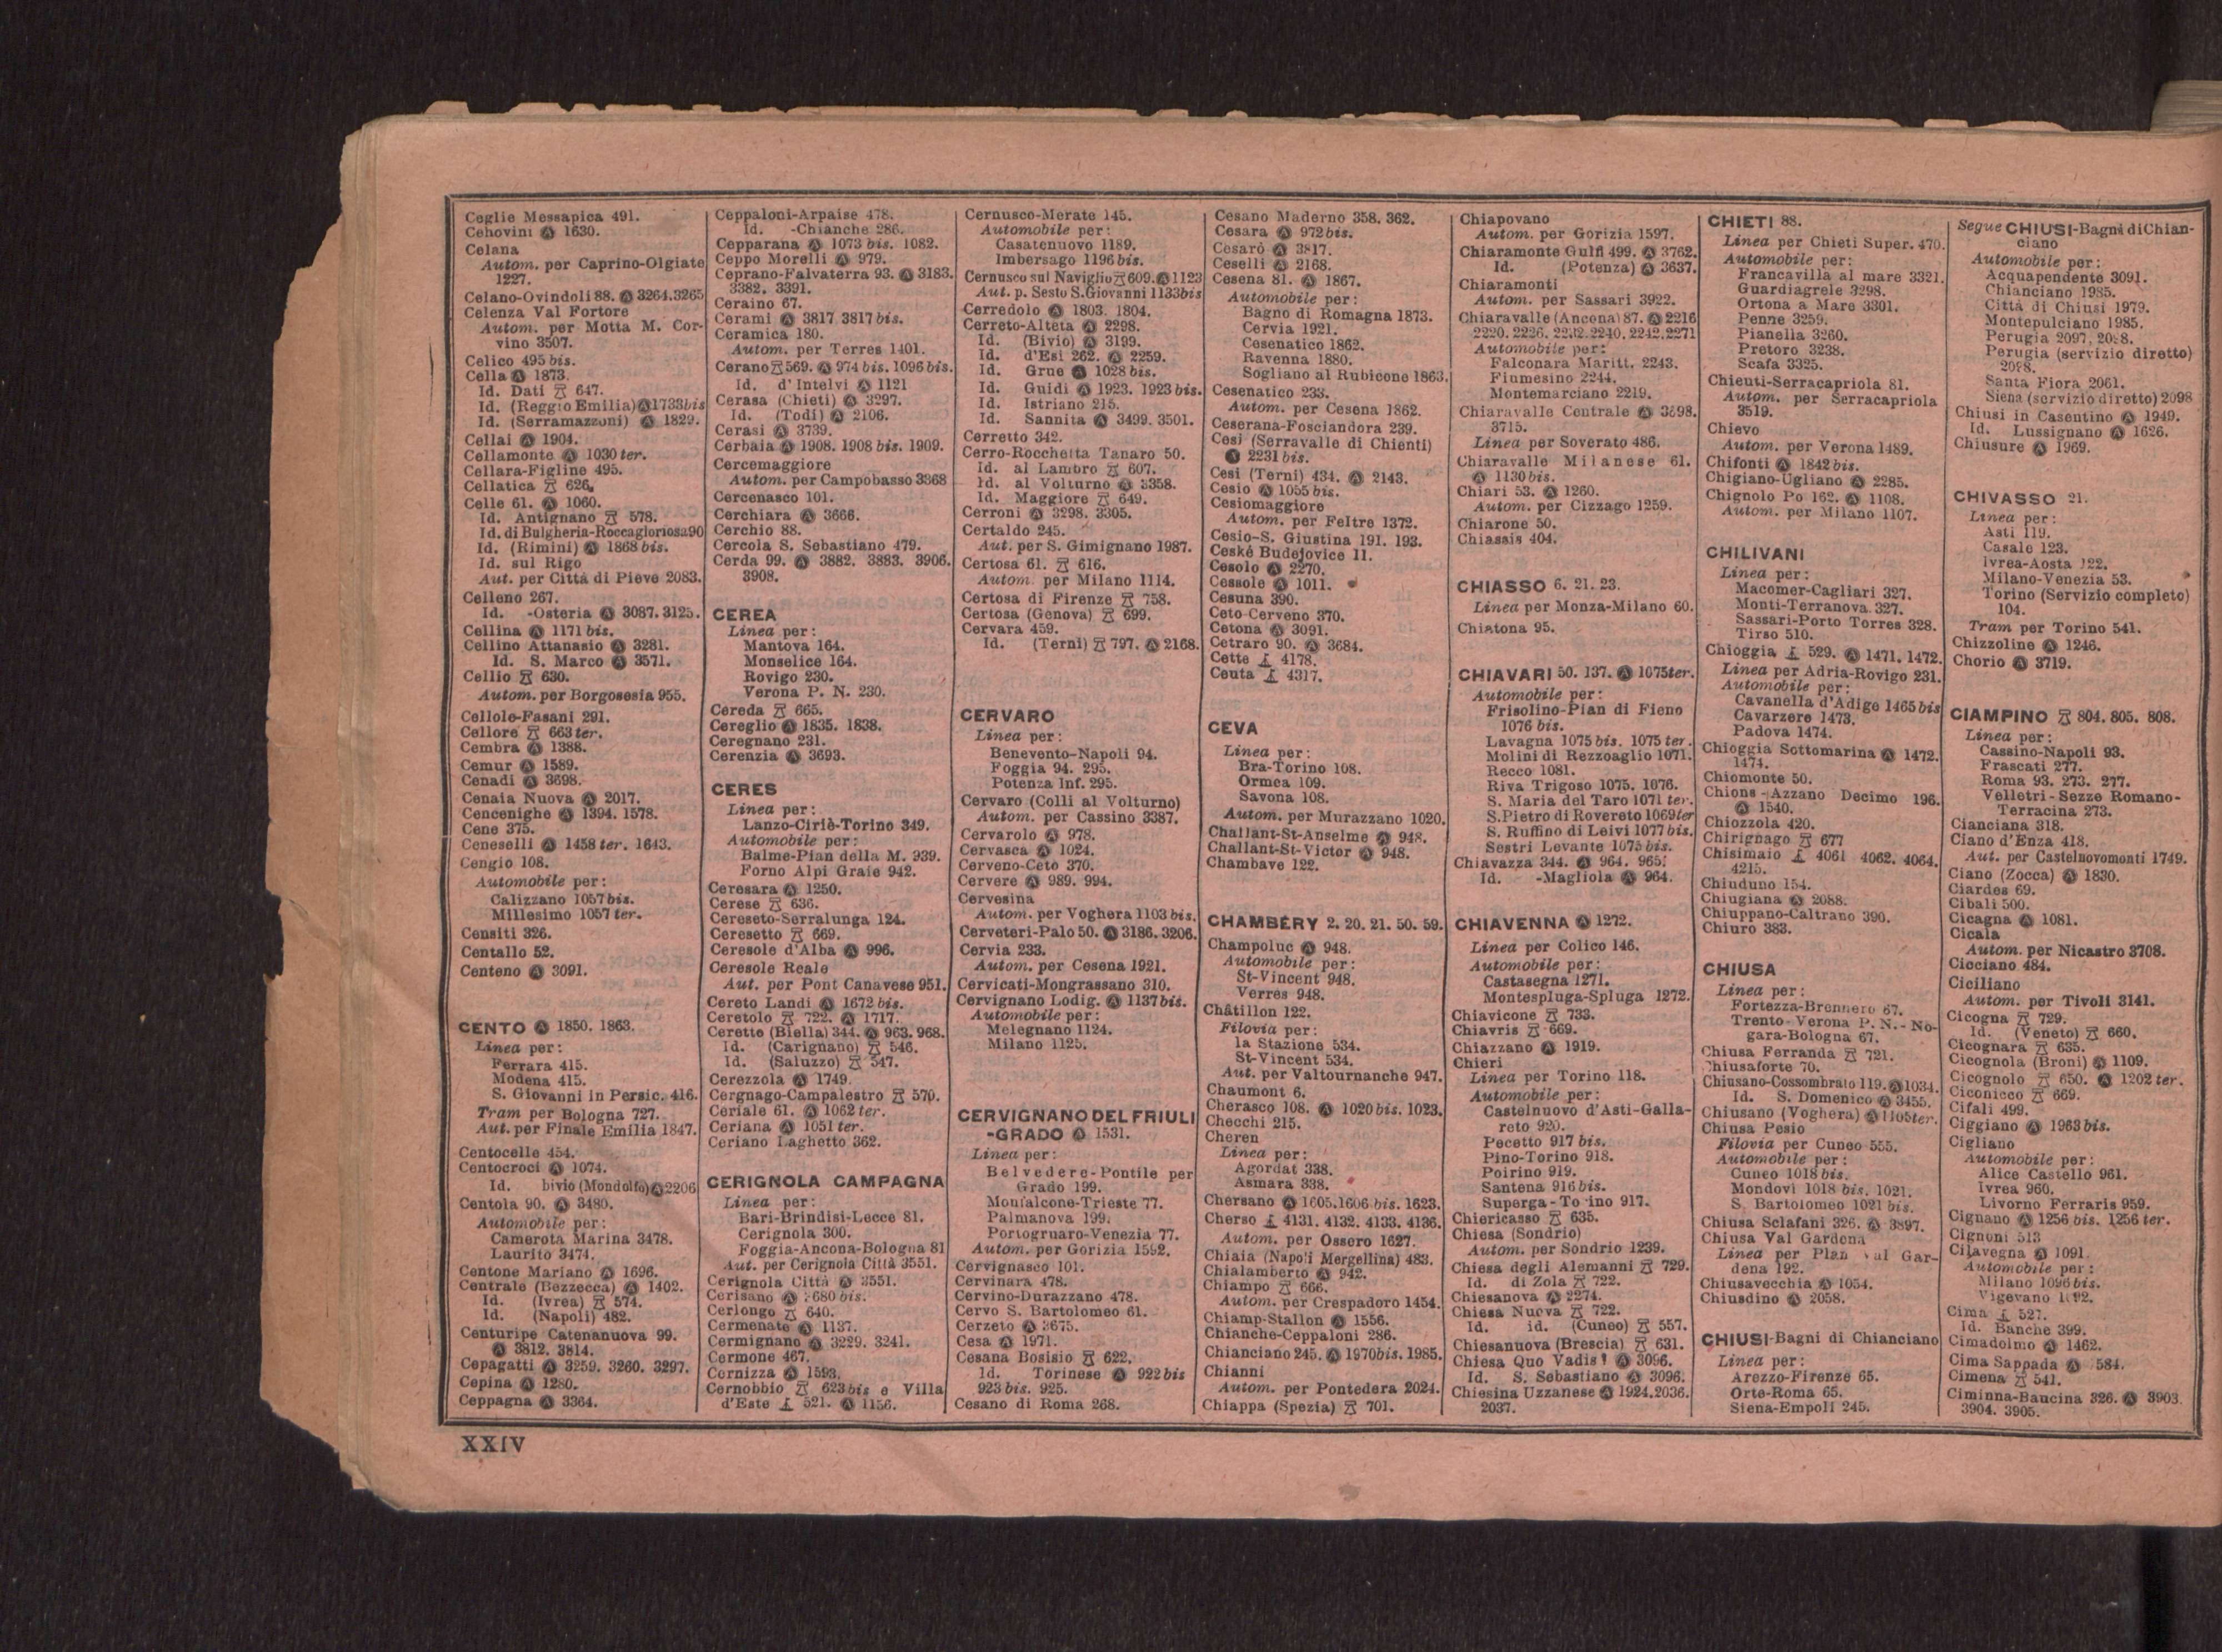 Ceglie Messapica 491.
Cehovini Ⓐ 1630.
Celana
Autom. per Caprino-Olgiate
1227.
Celano-Ovindoli 88. Ⓐ 3264.3265
Celenza Val Fortore
Autom. per Motta M. Cor-
vino 3507.
Celico 495 bis.
Cella Ⓐ 1873.
Id. Dati 647.
Id. (Reggio Emilia) Ⓐ 1733bis
Id. (Serramazzoni) Ⓐ 1829.
Cellai Ⓐ 1904.
Cellamonte Ⓐ 1030 ter.
Cellara-Figline 495.
Cellatica 626.
Celle 61. Ⓐ 1060.
Id. Antignano 578.
Id. di Bulgheria-Roccagloriosa 90
Id. (Rimini) Ⓐ 1868 bis.
Id. sul Rigo
Aut. per Città di Pieve 2083.
Celleno 267.
Id. -Osteria Ⓐ 3087. 3125.
Cellina Ⓐ 1171 bis.
Cellino Attanasio Ⓐ 3281.
Id. S. Marco Ⓐ 3571.
Cellio 630.
Autom. per Borgosesia 955.
Cellole-Fasani 291.
Cellore 663 ter.
Cembra Ⓐ 1388.
Cemur Ⓐ 1589.
Cenadi Ⓐ 3698.
Cenaia Nuova Ⓐ 2017.
Cencenighe Ⓐ 1394. 1578.
Cene 375.
Ceneselli Ⓐ 1458 ter. 1643.
Cengio 108.
Automobile per:
Calizzano 1057 bis.
Millesimo 1057 ter.
Censiti 326.
Centallo 52.
Centeno Ⓐ 3091.
CENTO Ⓐ 1850. 1863.
Linea per:
Ferrara 415.
Modena 415.
S. Giovanni in Persic. 416.
Tram per Bologna 727.
Aut. per Finale Emilia 1847.
Centocelle 454.
Centocroci Ⓐ 1074.
Id. bivio (Mondolfo) Ⓐ 2206
Centola 90. Ⓐ 3480.
Automobile per:
Camerota Marina 3478.
Laurito 3474.
Centone Mariano Ⓐ 1696.
Centrale (Bezzecca) Ⓐ 1402.
Id. (Ivrea) 574.
Id. (Napoli) 482.
Centuripe Catenanuova 99.
Ⓐ 3812. 3814.
Cepagatti Ⓐ 3259. 3260. 3297.
Cepina Ⓐ 1280.
Ceppagna Ⓐ 3364.
Ceppaloni-Arpaise 478.
Id. -Chianche 286.
Cepparana Ⓐ 1073 bis. 1082.
Ceppo Morelli Ⓐ 979.
Ceprano-Falvaterra 93. Ⓐ 3183.
3382. 3391.
Ceraino 67.
Cerami Ⓐ 3817 3817 bis.
Ceramica 180.
Autom. per Terres 1401.
Cerano 569. Ⓐ 974 bis. 1096 bis.
Id. d'Intelvi Ⓐ 1121
Cerasa (Chieti) Ⓐ 3297.
Id. (Todi) Ⓐ 2106.
Cerasi Ⓐ 3739.
Cerbaia Ⓐ 1908. 1908 bis. 1909.
Cercemaggiore
Autom. per Campobasso 3368
Cercenasco 101.
Cerchiara Ⓐ 3666.
Cerchio 88.
Cercola S. Sebastiano 479.
Cerda 99. Ⓐ 3882. 3883. 3906.
3908.
CEREA
Linea per:
Mantova 164.
Monselice 164.
Rovigo 230.
Verona P. N. 230.
Cereda 665.
Cereglio Ⓐ 1835. 1838.
Ceregnano 231.
Cerenzia Ⓐ 3693.
CERES
Linea per:
Lanzo-Ciriè-Torino 349.
Automobile per:
Balme-Pian della M. 939.
Forno Alpi Graie 942.
Ceresara Ⓐ 1250.
Cerese 636.
Cereseto-Serralunga 124.
Ceresetto 669.
Ceresole d'Alba Ⓐ 996.
Ceresole Reale
Aut. per Pont Canavese 951.
Cereto Landi Ⓐ 1672 bis.
Ceretolo 722. Ⓐ 1717.
Ceretto (Biella) 344. Ⓐ 963. 968.
Id. (Carignano) 546.
Id. (Saluzzo) 547.
Cerezzola Ⓐ 1749.
Cergnago-Campalestro 570.
Ceriale 61. Ⓐ 1062 ter.
Ceriana Ⓐ 1051 ter.
Ceriano Laghetto 362.
CERIGNOLA CAMPAGNA
Linea per:
Bari-Brindisi-Lecce 81.
Cerignola 300.
Foggia-Ancona-Bologna 81
Aut. per Cerignola Città 3551.
Cerignola Città Ⓐ 3551.
Cerisano Ⓐ 680 bis.
Cerlongo 640.
Cermenate Ⓐ 1137.
Cermignano Ⓐ 3229. 3241.
Cermone 467.
Cernizza Ⓐ 1593.
Cernobbio 623 bis e Villa
d'Este 521. Ⓐ 1156.
Cernusco-Merate 145.
Automobile per:
Casatenuovo 1189.
Imbersago 1196 bis.
Cernusco sul Naviglio 609. Ⓐ 1123
Aut. p. Sesto S. Giovanni 1133bis
Cerredolo Ⓐ 1803. 1804.
Cerreto-Alteta Ⓐ 2298.
Id. (Bivio) Ⓐ 3199.
Id. d'Esi 262. Ⓐ 2259.
Id. Grue Ⓐ 1028 bis.
Id. Guidi Ⓐ 1923. 1923 bis.
Id. Istriano 215.
Id. Sannita Ⓐ 3499. 3501.
Cerretto 342.
Cerro-Rocchetta Tanaro 50.
Id. al Lambro 607.
Id. al Volturno Ⓐ 3358.
Id. Maggiore 649.
Cerroni Ⓐ 3298. 3305.
Certaldo 245.
Aut. per S. Gimignano 1987.
Certosa 61. 616.
Autom. per Milano 1114.
Certosa di Firenze 758.
Certosa (Genova) 699.
Cervara 459.
Id. (Terni) 797. Ⓐ 2168.
CERVARO
Linea per:
Benevento-Napoli 94.
Foggia 94. 295.
Potenza Inf. 295.
Cervaro (Colli al Volturno)
Autom. per Cassino 3387.
Cervarolo Ⓐ 978.
Cervasca Ⓐ 1024.
Cerveno-Ceto 370.
Cervere Ⓐ 989. 994.
Cervesina
Autom. per Voghera 1103 bis.
Cerveteri-Palo 50. Ⓐ 3186. 3206.
Cervia 233.
Autom. per Cesena 1921.
Cervicati-Mongrassano 310.
Cervignano Lodig. Ⓐ 1137 bis.
Automobile per:
Melegnano 1124.
Milano 1125.
CERVIGNANO DEL FRIULI
-GRADO Ⓐ 1531.
Linea per:
Belvedere-Pontile per
Grado 199.
Monfalcone-Trieste 77.
Palmanova 199.
Portogruaro-Venezia 77.
Autom. per Gorizia 1592.
Cervignasco 101.
Cervinara 478.
Cervino-Durazzano 478.
Cervo S. Bartolomeo 61.
Cerzeto Ⓐ 3675.
Cesa Ⓐ 1971.
Cesana Bosisio 622.
Id. Torinese Ⓐ 922 bis
923 bis. 925.
Cesano di Roma 268.
Cesano Maderno 358. 362.
Cesara Ⓐ 972 bis.
Cesarò Ⓐ 3817.
Ceselli Ⓐ 2168.
Cesena 81. Ⓐ 1867.
Automobile per:
Bagno di Romagna 1873.
Cervia 1921.
Cesenatico 1862.
Ravenna 1880.
Sogliano al Rubicone 1863.
Cesenatico 233.
Autom. per Cesena 1862.
Ceserana-Fosciandora 239.
Cesi (Serravalle di Chienti)
Ⓐ 2231 bis.
Cesi (Terni) 434. Ⓐ 2143.
Cesio Ⓐ 1055 bis.
Cesiomaggiore
Autom. per Feltre 1372.
Cesio-S. Giustina 191. 193.
Ceské Budejovice 11.
Cesolo Ⓐ 2270.
Cessole Ⓐ 1011.
Cesuna 390.
Ceto-Cerveno 370.
Cetona Ⓐ 3091.
Cetraro 90. Ⓐ 3684.
Cette 4178.
Ceuta 4317.
CEVA
Linea per:
Bra-Torino 108.
Ormea 109.
Savona 108.
Autom. per Murazzano 1020.
Challant-St-Anselme Ⓐ 948.
Challant-St-Victor Ⓐ 948.
Chambave 122.
CHAMBÉRY 2. 20. 21. 50. 59.
Champoluc Ⓐ 948.
Automobile per:
St-Vincent 948.
Verrès 948.
Châtillon 122.
Filovia per:
la Stazione 534.
St-Vincent 534.
Aut. per Valtournanche 947.
Chaumont 6.
Cherasco 108. Ⓐ 1020 bis. 1023.
Checchi 215.
Cheren
Linea per:
Agordat 338.
Asmara 338.
Chersano Ⓐ 1605. 1606 bis. 1623.
Cherso 4131. 4132. 4133. 4136.
Autom. per Ossero 1627.
Chiaia (Napoli Mergellina) 483.
Chialamberto Ⓐ 942.
Chiampo 666.
Autom. per Crespadoro 1454.
Chiamp-Stallon Ⓐ 1556.
Chianche-Ceppaloni 286.
Chianciano 245. Ⓐ 1970bis. 1985.
Chianni
Autom. per Pontedera 2024.
Chiappa (Spezia) 701.
Chiapovano
Autom. per Gorizia 1597.
Chiaramonte Gulfi 499. Ⓐ 3762.
Id. (Potenza) Ⓐ 3637.
Chiaramonti
Autom. per Sassari 3922.
Chiaravalle (Ancona) 87. Ⓐ 2216
2220. 2226. 2232. 2240. 2242. 2271
Automobile per:
Falconara Maritt. 2243.
Fiumesino 2244.
Montemarciano 2219.
Chiaravalle Centrale Ⓐ 3698.
3715.
Linea per Soverato 486.
Chiaravalle Milanese 61.
Ⓐ 1130 bis.
Chiari 53. Ⓐ 1260.
Autom. per Cizzago 1259.
Chiarone 50.
Chiasais 404.
CHIASSO 6. 21. 23.
Linea per Monza-Milano 60.
Chiatona 95.
CHIAVARI 50. 137. Ⓐ 1075ter.
Automobile per:
Frisolino-Pian di Fieno
1076 bis.
Lavagna 1075 bis. 1075 ter.
Molini di Rezzoaglio 1071.
Recco 1081.
Riva Trigoso 1075. 1076.
S. Maria del Taro 1071 ter.
S. Pietro di Rovereto 1069ter
S. Ruffino di Leivi 1077 bis.
Sestri Levante 1075 bis.
Chiavazza 344. Ⓐ 964. 965.
Id. -Magliola Ⓐ 964.
CHIAVENNA Ⓐ 1272.
Linea per Colico 146.
Automobile per:
Castasegna 1271.
Montespluga-Spluga 1272.
Chiavicone 733.
Chiavris 669.
Chiazzano Ⓐ 1919.
Chieri
Linea per Torino 118.
Automobile per:
Castelnuovo d'Asti-Galla-
reto 920.
Pecetto 917 bis.
Pino-Torino 918.
Poirino 919.
Santena 916 bis.
Superga-To ino 917.
Chiericasso 635.
Chiesa (Sondrio)
Autom. per Sondrio 1239.
Chiesa degli Alemanni 729.
Id. di Zola 722.
Chiesanova Ⓐ 2274.
Chiesa Nuova 722.
Id. id. (Cuneo) 557.
Chiesanuova (Brescia) 631.
Chiesa Quo Vadis? Ⓐ 3096.
Id. S. Sebastiano Ⓐ 3096.
Chiesina Uzzanese Ⓐ 1924. 2036.
2037.
CHIETI 88.
Linea per Chieti Super. 470.
Automobile per:
Francavilla al mare 3321.
Guardiagrele 3298.
Ortona a Mare 3301.
Penne 3259.
Pianella 3260.
Pretoro 3238.
Scafa 3325.
Chieuti-Serracapriola 81.
Autom. per Serracapriola
3519.
Chievo
Autom. per Verona 1489.
Chifonti Ⓐ 1842 bis.
Chigiano-Ugliano Ⓐ 2285.
Chignolo Po 162. Ⓐ 1108.
Autom. per Milano 1107.
CHILIVANI
Linea per:
Macomer-Cagliari 327.
Monti-Terranova 327.
Sassari-Porto Torres 328.
Tirso 510.
Chioggia 529. Ⓐ 1471. 1472.
Linea per Adria-Rovigo 231.
Automobile per:
Cavanella d'Adige 1465 bis
Cavarzere 1473.
Padova 1474.
Chioggia Sottomarina Ⓐ 1472.
1474.
Chiomonte 50.
Chions-Azzano Decimo 196.
Ⓐ 1540.
Chiozzola 420.
Chirignago 677
Chisimaio 4061 4062. 4064.
4215.
Chiuduno 154.
Chiugiana Ⓐ 2088.
Chiuppano-Caltrano 390.
Chiuro 383.
CHIUSA
Linea per:
Fortezza-Brennero 67.
Trento-Verona P. N.-No-
gara-Bologna 67.
Chiusa Ferranda 721.
Chiusaforte 70.
Chiusano-Cossombrato 119. Ⓐ 1034.
Id. S. Domenico Ⓐ 3455.
Chiusano (Voghera) Ⓐ 1105ter.
Chiusa Pesio
Filovia per Cuneo 555.
Automobile per:
Cuneo 1018 bis.
Mondovì 1018 bis. 1021.
S. Bartolomeo 1021 bis.
Chiusa Sclafani 326. Ⓐ 3897.
Chiusa Val Gardena
Linea per Plan val Gar-
dena 192.
Chiusavecchia Ⓐ 1054.
Chiusdino Ⓐ 2058.
CHIUSI-Bagni di Chianciano
Linea per:
Arezzo-Firenze 65.
Orte-Roma 65.
Siena-Empoli 245.
Segue CHIUSI-Bagni di Chian-
ciano
Automobile per:
Acquapendente 3091.
Chianciano 1985.
Città di Chiusi 1979.
Montepulciano 1985.
Perugia 2097. 2098.
Perugia (servizio diretto)
2098.
Santa Fiora 2061.
Siena (servizio diretto) 2098
Chiusi in Casentino Ⓐ 1949.
Id. Lussignano Ⓐ 1626.
Chiusure Ⓐ 1969.
CHIVASSO 21.
Linea per:
Asti 119.
Casale 123.
Ivrea-Aosta 122.
Milano-Venezia 53.
Torino (Servizio completo)
104.
Tram per Torino 541.
Chizzoline Ⓐ 1246.
Chorio Ⓐ 3719.
CIAMPINO 804. 805. 808.
Linea per:
Cassino-Napoli 93.
Frascati 277.
Roma 93. 273. 277.
Velletri-Sezze Romano-
Terracina 273.
Cianciana 318.
Ciano d'Enza 418.
Aut. per Castelnovomonti 1749.
Ciano (Zocca) Ⓐ 1830.
Ciardes 69.
Cibali 500.
Cicagna Ⓐ 1081.
Cicala
Autom. per Nicastro 3708.
Cicciano 484.
Ciciliano
Autom. per Tivoli 3141.
Cicogna 729.
Id. (Veneto) 660.
Cicognara 635.
Cicognola (Broni) Ⓐ 1109.
Cicognolo 650. Ⓐ 1202 ter.
Ciconicco 669.
Cifali 499.
Ciggiano Ⓐ 1963 bis.
Cigliano
Automobile per:
Alice Castello 961.
Ivrea 960.
Livorno Ferraris 959.
Cignano Ⓐ 1256 bis. 1256 ter.
Cignoni 513
Cilavegna Ⓐ 1091
Automobile per:
Milano 1096 bis.
Vigevano 1092.
Cima 527.
Id. Banche 399.
Cimadolmo Ⓐ 1462.
Cima Sappada Ⓐ 584.
Cimena 541.
Ciminna-Baucina 326. Ⓐ 3903.
3904. 3905.
XXIV